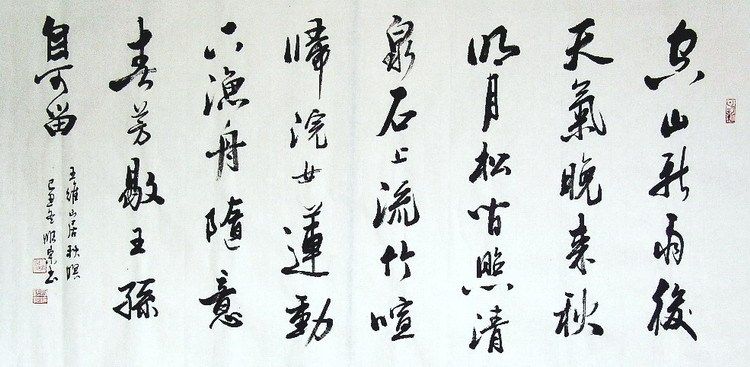 空山新雨後
天氣晚来秋
明月松间照清
泉石上流竹喧
歸浣女蓮動
下漁舟隨意
春芳歇王孫
自可留
王維山居秋暝
己丑